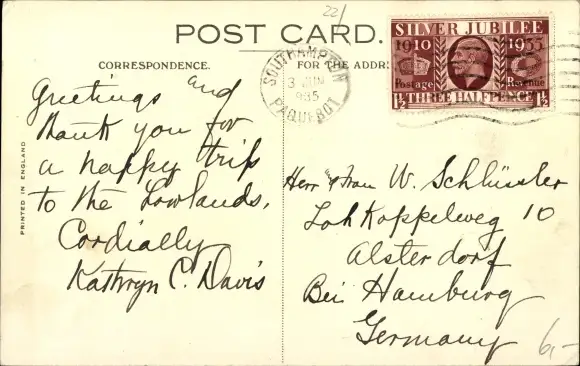 22/
POST CARD.
CORRESPONDENCE.
FOR THE ADDR
SILVER JUBILEE
1910 1935
Postage Revenue
1½ THREE HALFPENCE 1½
SOUTHAMPTON
3 JUN
1935
PAQUEBOT
PRINTED IN ENGLAND
Greetings and
thank you for
a happy trip
to the Lowlands.
Cordially
Kathryn C. Davis
Herr & Frau W. Schlüssler
Loh Koppelweg 10
Alsterdorf
Bei Hamburg
Germany
6,-